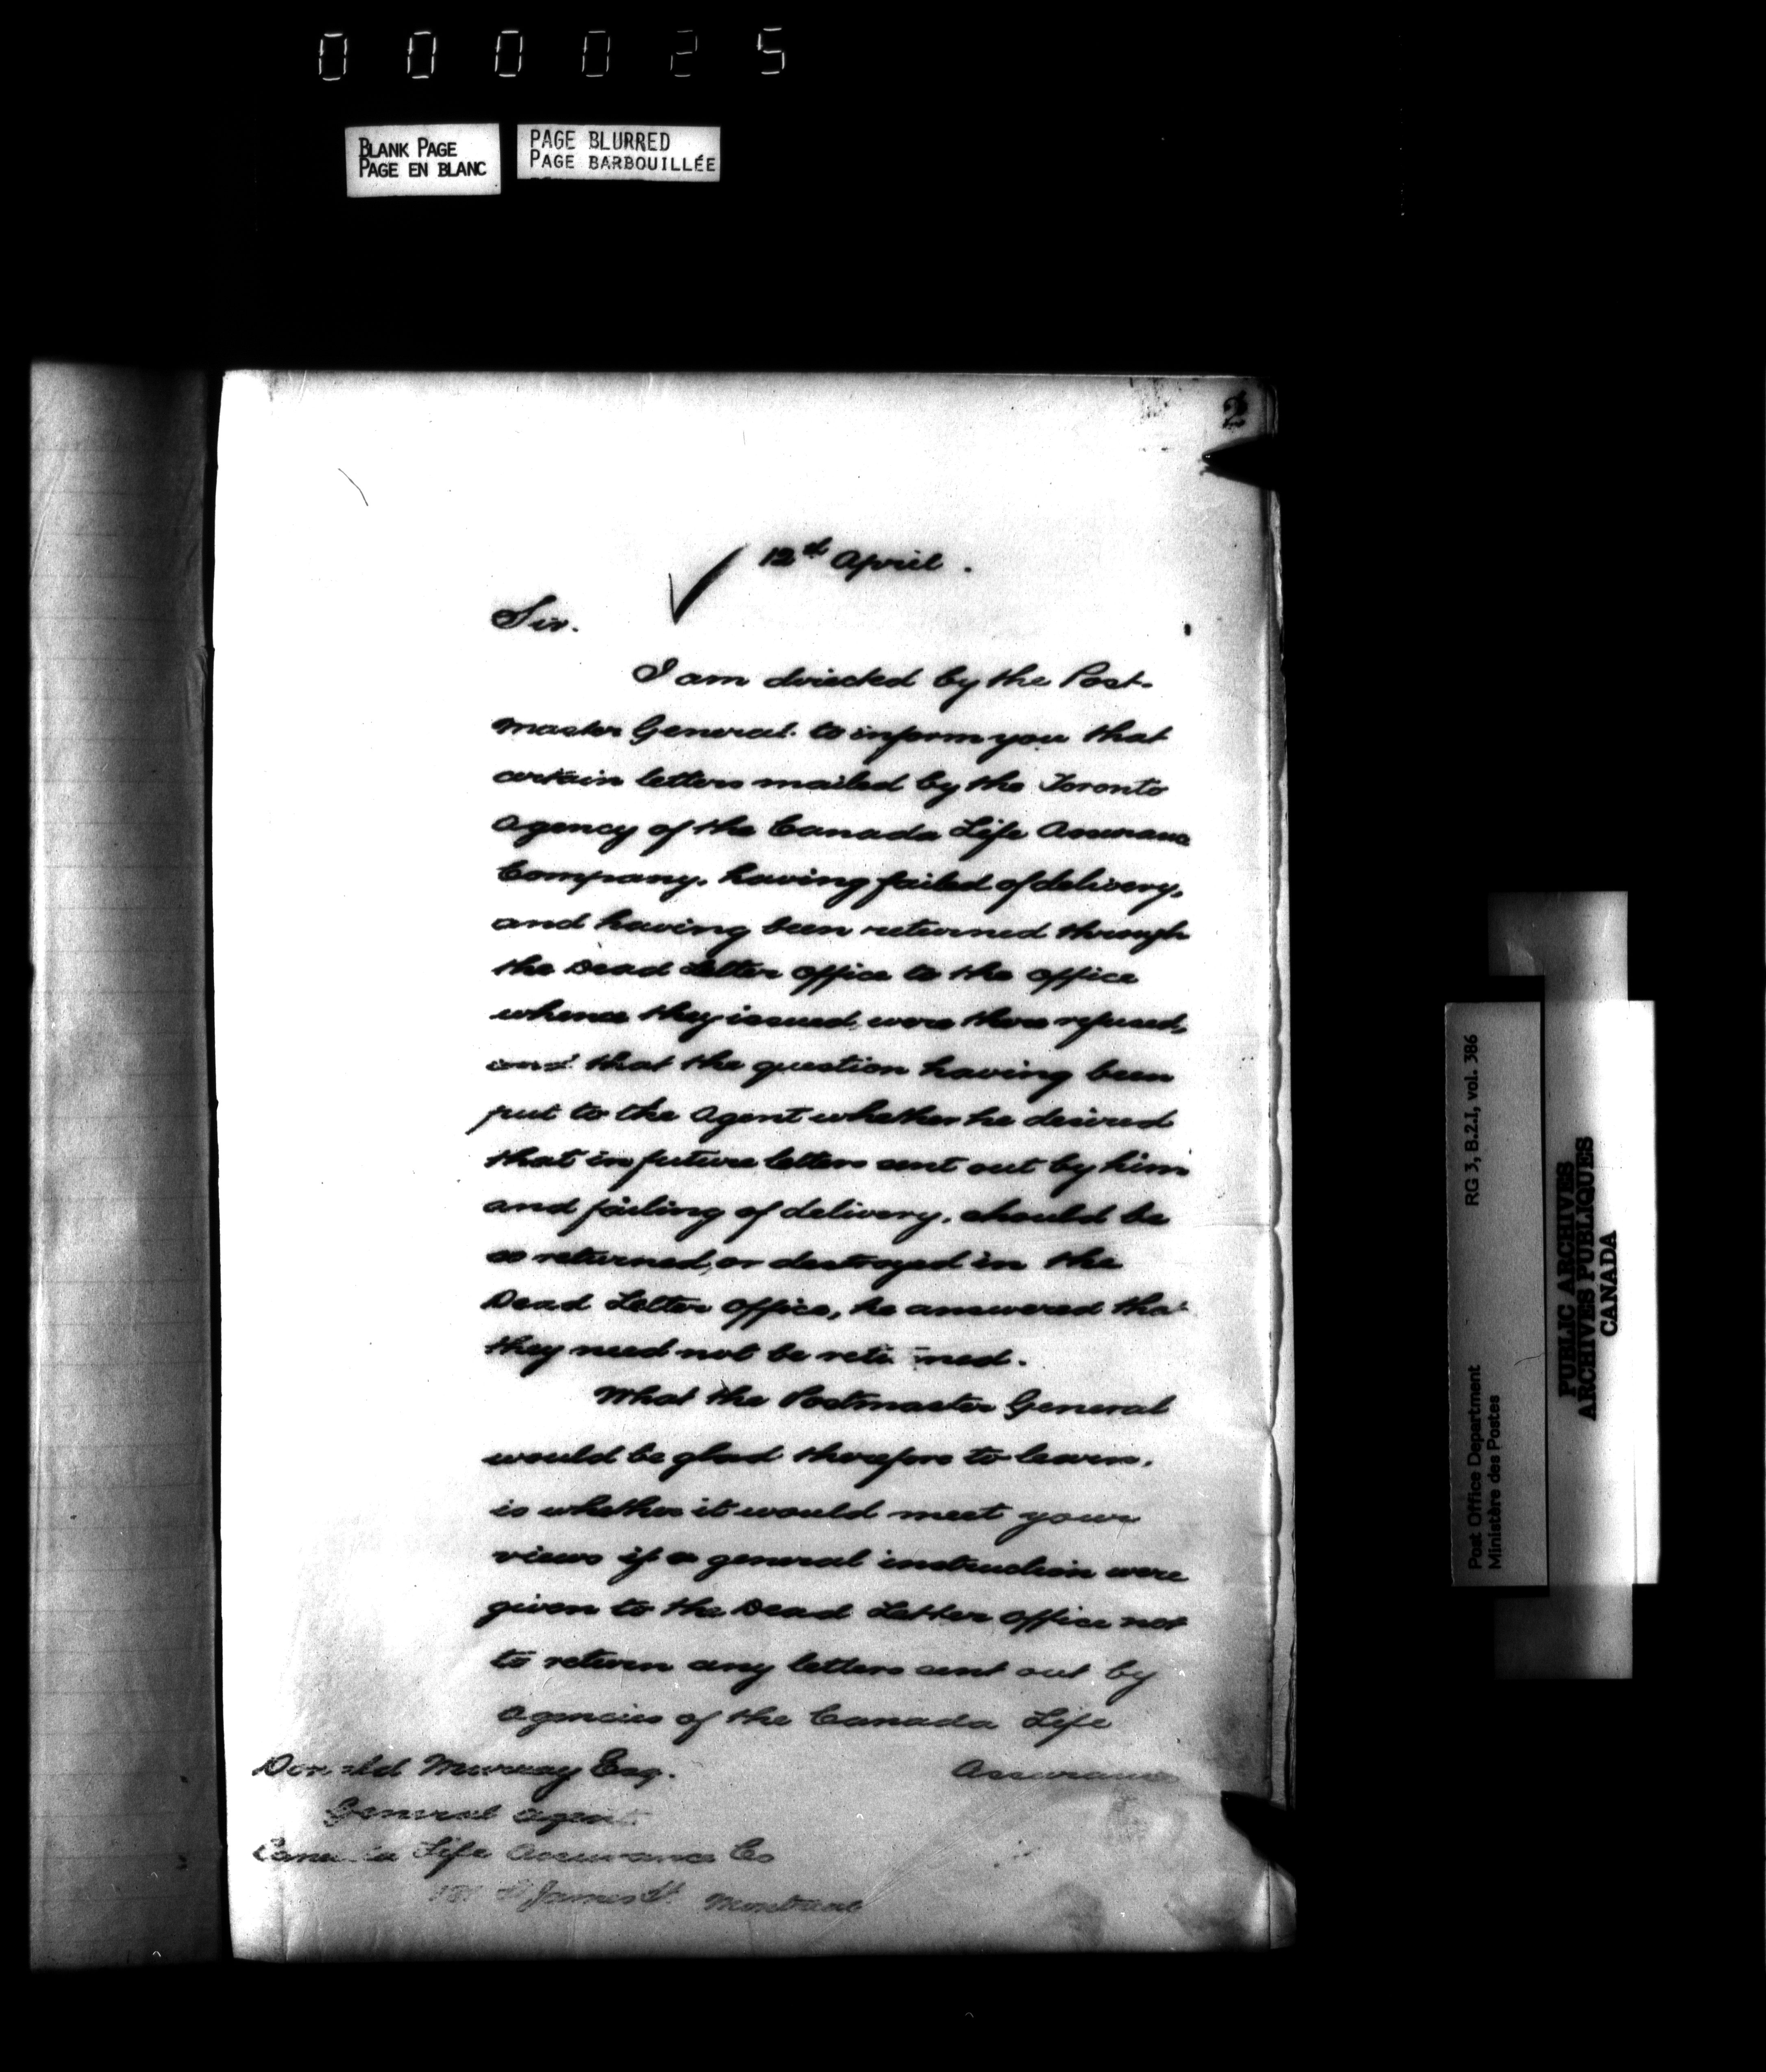 000025
BLANK PAGE
PAGE EN BLANC
PAGE BLURRED
PAGE BARBOUILLÉE
2
12th April.
Sir.
I am directed by the Post-
master General to inform you that
certain letters mailed by the Toronto
Agency of the Canada Life Assurance
Company, having failed of delivery,
and having been returned through
the Dead Letter Office to the Office
whence they issued, were there refused,
and that the question having been
put to the Agent whether he desired
that in future letters sent out by him
and failing of delivery, should be
so returned, or destroyed in the
Dead Letter Office, he answered that
they need not be returned.
What the Postmaster General
would be glad therefore to learn,
is whether it would meet your
views if a general instruction were
given to the Dead Letter Office not
to return any letters sent out by
Agencies of the Canada Life
Assurance
Donald Murray Esq.
General Agent
Canada Life Assurance Co
St James St. Montreal
Post Office Department
Ministère des Postes
RG 3, B.2.I, vol. 386
PUBLIC ARCHIVES
ARCHIVES PUBLIQUES
CANADA